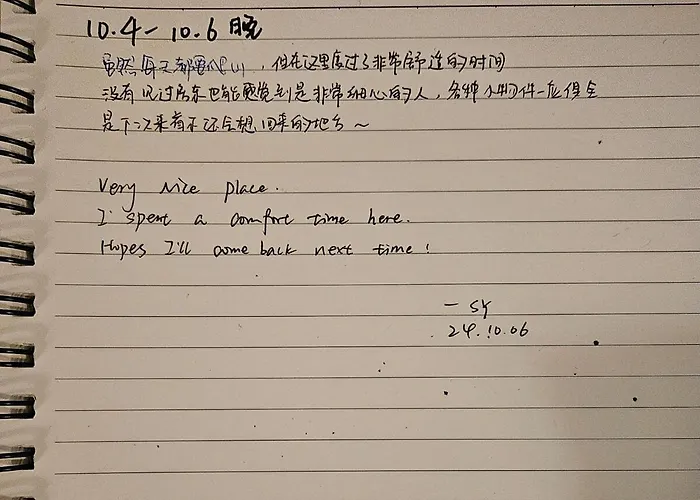 10.4-10.6 晚
虽然每天都要爬山，但在这里度过了非常舒适的时间
没有见过房东也能感觉到是非常细心的人，各种小物件一应俱全
是下次来有不还会想回来的地方～
Very nice place.
I spent a comfort time here.
Hopes I'll come back next time!
— SY
24.10.06